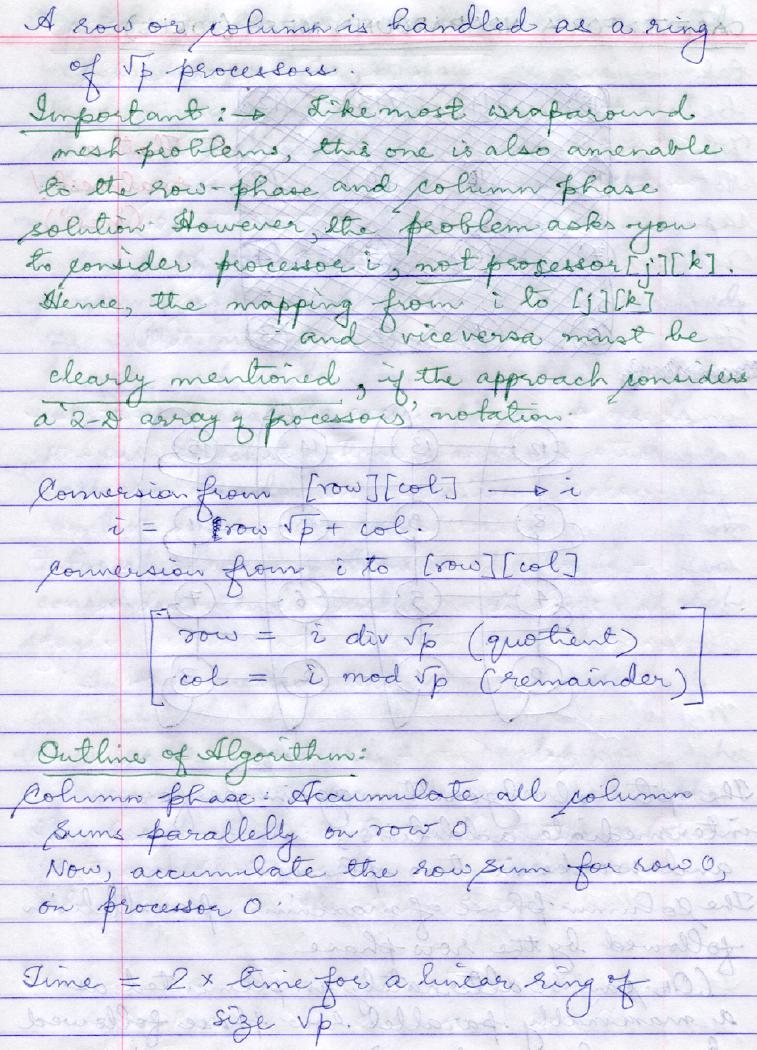 A row or column is handled as a ring
of √p processors.
Important :→ Like most wraparound
mesh problems, this one is also amenable
to the row-phase and column phase
solution. However, the problem asks you
to consider processor i, not processor[j][k].
Hence, the mapping from i to [j][k]
and viceversa must be
clearly mentioned, if the approach considers
a '2-D array of processors' notation.
Conversion from [row][col] → i
i = row √p + col.
Conversion from i to [row][col]
row = i div √p (quotient)
col = i mod √p (remainder)
Outline of Algorithm:
Column phase: Accumulate all column
sums parallelly on row 0
Now, accumulate the row sum for row 0,
on processor 0.
Time = 2 x time for a linear ring of
size √p.